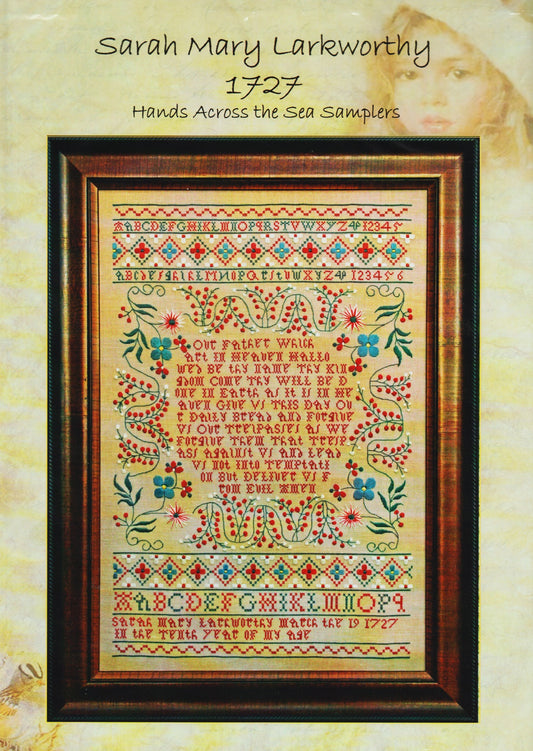 Sarah Mary Larkworthy
1727
Hands Across the Sea Samplers
ABCDEFGHIKLMNOPQRSTVWXYZ&12345
ABCDEFGHIKLMNOPQRSTUWXYZ&123456
Our Father Which
Art in Heaven Hallo
wed Be thy name Thy Kin
gdom Come Thy Will Be D
one in Earth as it Is in He
aven Give Vs This Day Ou
r Daily Bread and Forgive
Vs Our Trespasses as We
Forgive Them That Tresp
ass against Vs and Lead
Vs not Into Temptati
on But Deliver Vs F
rom Evil Amen
AABCDEFGHIKLMNOPQ
Sarah Mary Larkworthy March the 19 1727
In the Tenth Year of My Age